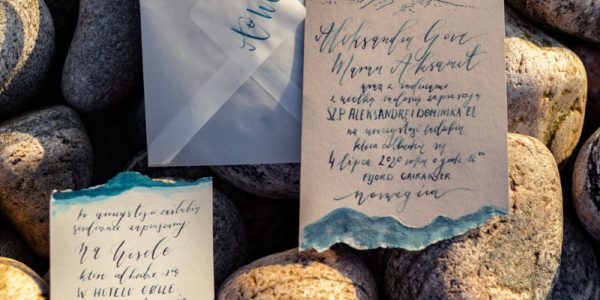 Aleksandra Góra
Maran Aksamit
wraz z rodzicami
z wielką radością zapraszają
SZ.P. ALEKSANDRĘ I DOMINIKA EL
na uroczystość ślubu
która odbędzie się
4 lipca 2020 roku o godz. 16°°
FIJORD
Norwegia
Po uroczystości ślubu
serdecznie zapraszamy
Na Wesele
które odbędzie się
W HOTELU